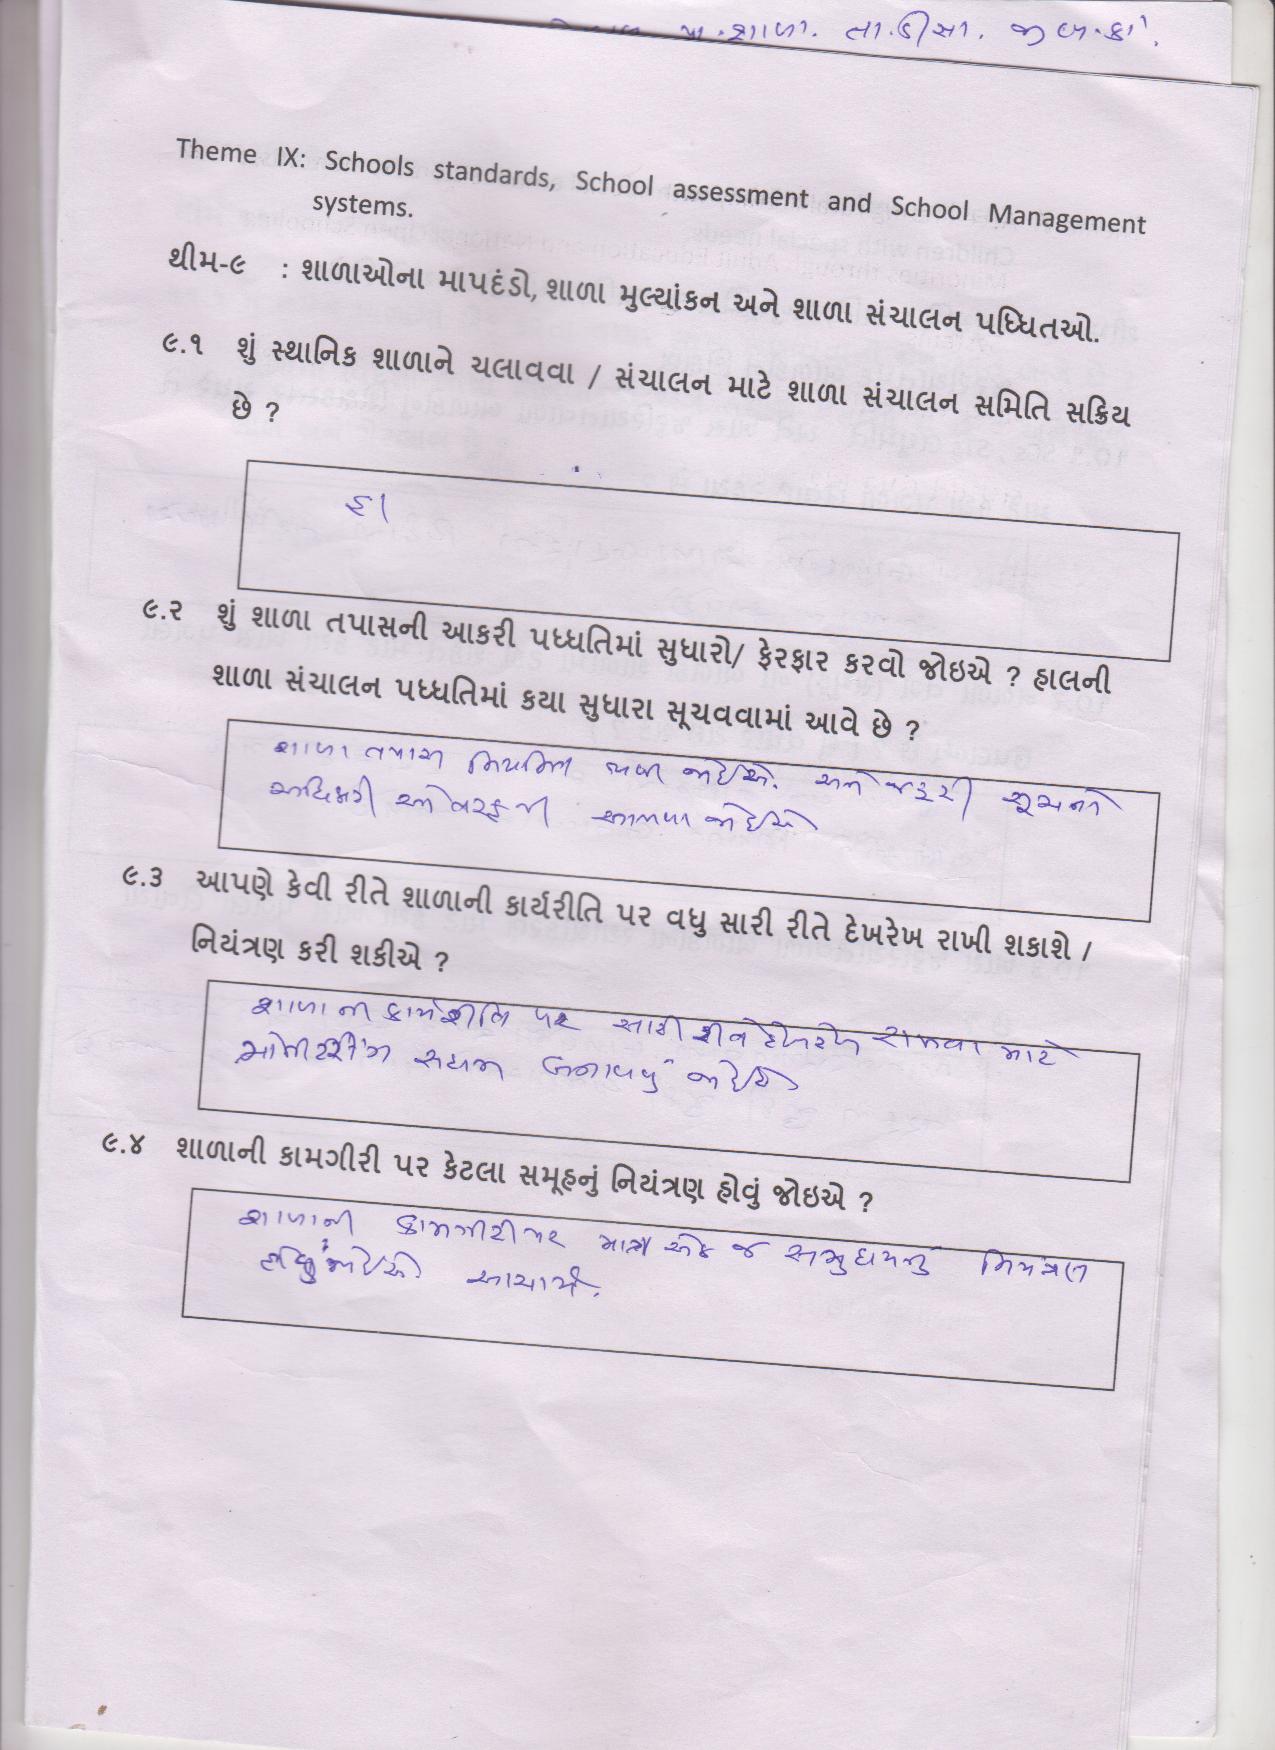 પ્રા.શાળા. તા.ડીસા. જી.બ.કાં.
Theme IX: Schools standards, School assessment and School Management
systems.
થીમ-૯ : શાળાઓના માપદંડો, શાળા મુલ્યાંકન અને શાળા સંચાલન પધ્ધિતઓ.
૯.૧ શું સ્થાનિક શાળાને ચલાવવા / સંચાલન માટે શાળા સંચાલન સમિતિ સક્રિય
છે ?
હા
૯.૨ શું શાળા તપાસની આકરી પધ્ધતિમાં સુધારો/ ફેરફાર કરવો જોઇએ ? હાલની
શાળા સંચાલન પધ્ધતિમાં કયા સુધારા સૂચવવામાં આવે છે ?
શાળા તપાસ નિયમિત થવી જોઈએ. અને જરૂરી સૂચનો
અધિકારી ઓ તરફથી આપવા જોઈએ
૯.૩ આપણે કેવી રીતે શાળાની કાર્યરીતિ પર વધુ સારી રીતે દેખરેખ રાખી શકાશે /
નિયંત્રણ કરી શકીએ ?
શાળાની કાર્યરીતિ પર સારી રીતે દેખરેખ રાખવા માટે
મોનીટરીંગ સઘન બનાવવું જોઈએ
૯.૪ શાળાની કામગીરી પર કેટલા સમૂહનું નિયંત્રણ હોવું જોઇએ ?
શાળાની કામગીરી પર માત્ર એક જ સમુદાયનું નિયંત્રણ
હોવું જોઈએ આચાર્ય.